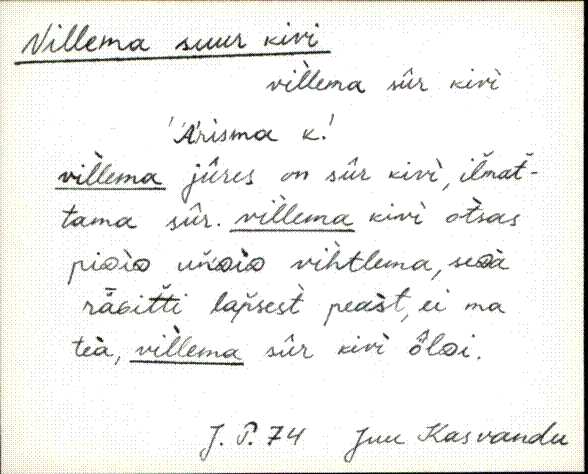 Villema suur kivi
villema sûr kivì
'Ärisma k.'
villema jûres on sûr kivì, ilmat̆-
tama sûr. villema kivì ot̀sas
piᴅ̀ìᴅ uňᴅìᴅ vihtlema, seᴅà
räɢit̆ti lap̆sest̀ peast, ei ma
teà, villema sûr kivì ôlᴅi.
J. P. 74 Juu Kasvandu